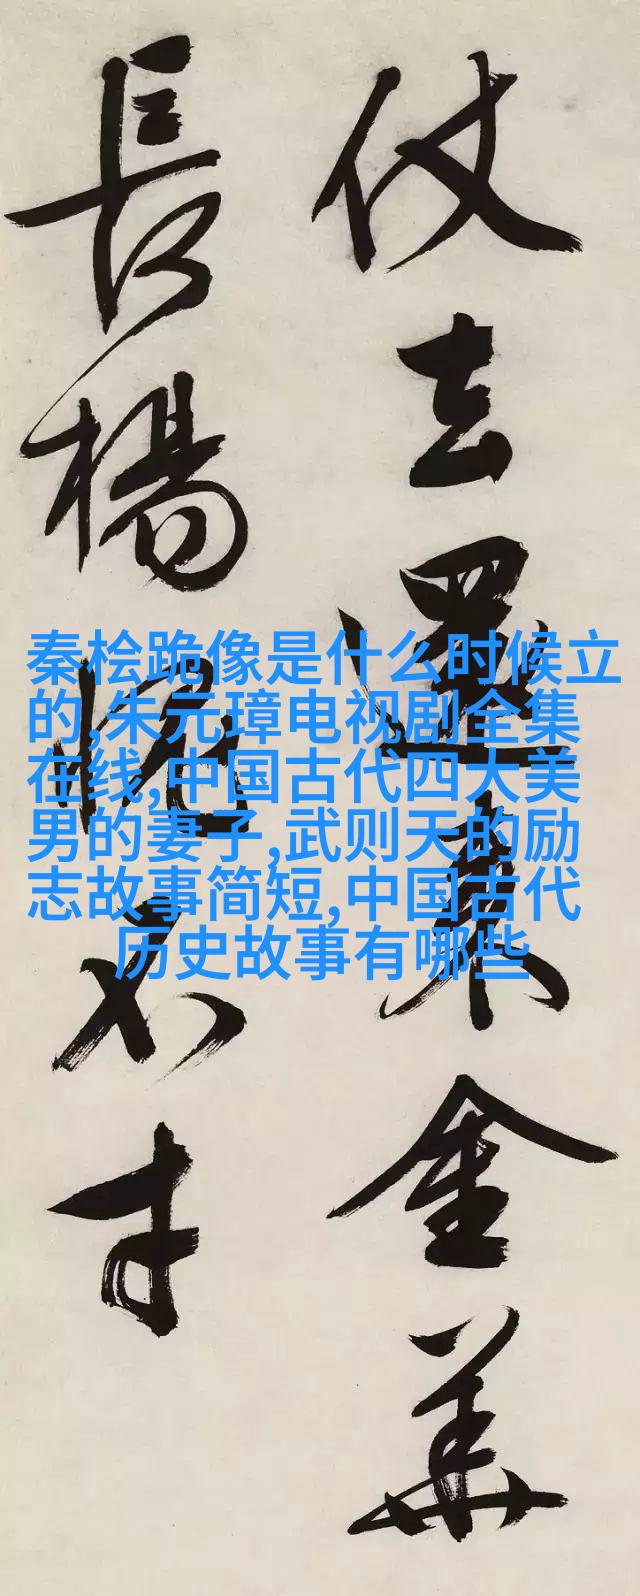 仗去還来金華
長楊愧不才
秦桧跪像是什么时候立
的,朱元璋电视剧全集
在线,中国古代四大美
男的妻子,武则天的励
志故事简短,中国古代
历史故事有哪些